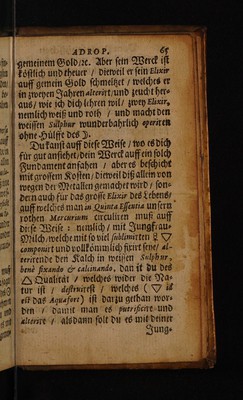 ADROP. 65
gemeinem Gold/ꝛc. Aber sein Werck ist
köstlich und theuer / dieweil er sein Elixir
auff gemein Gold schmeltzet / welches er
in zweyen Jahren alterirt/ und zeucht her-
aus/ wie ich dich lehren wil/ zwey Elixir,
nemlich weiß und roth / und macht den
weissen Sulphur wunderbahrlich operiren
ohne Hülffe des ☽.
Du kanst auff diese Weise / wo es dich
für gut ansiehet/ dein Werck auff ein solch
Fundament anfahen / aber es beschicht
mit grossem Kosten/ dieweil diß allein von
wegen der Metallen gemachet wird / son-
dern auch für das grosse Elixir des Lebens/
auff welches man in Quinta Essentia unsern
rothen Mercurium circuliren muß auff
diese Weise : nemlich / mit Jungfrau-
Milch/welche mit so viel sublimirten ☿ 🜄
componirt und vollkömmlich fixirt seye/ al-
terirende den Kalch in weissen Sulphur,
benè fixando & calcinando, dan it du des
🜂 Qualität / welches wider die Na-
tur ist / destruirest / welches ( 🜄 is
est das Aquafort) ist darzu gethan wor-
den / damit man es putrificirt und
alterirt / als dann solt du es mit deiner
Jung-